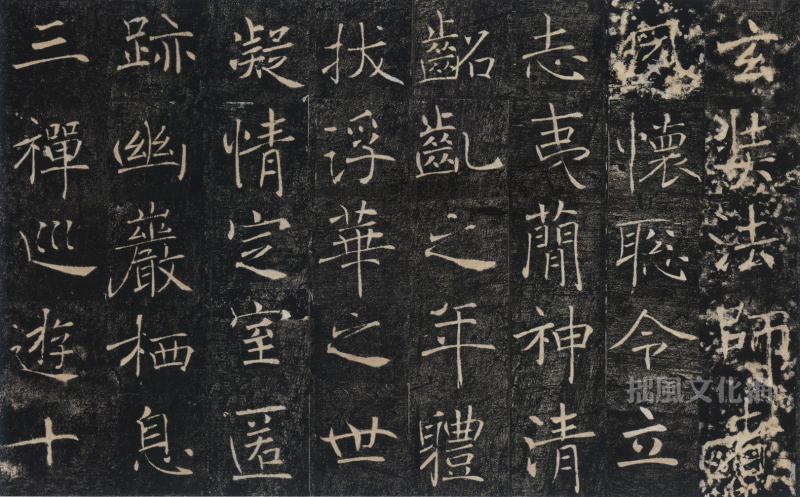 玄奘法師者
夙懷聰令立
志夷簡神清
齠齔之年體
拔浮華之世
凝情定室匿
跡幽巖栖息
三禪巡遊十
拙風文化網